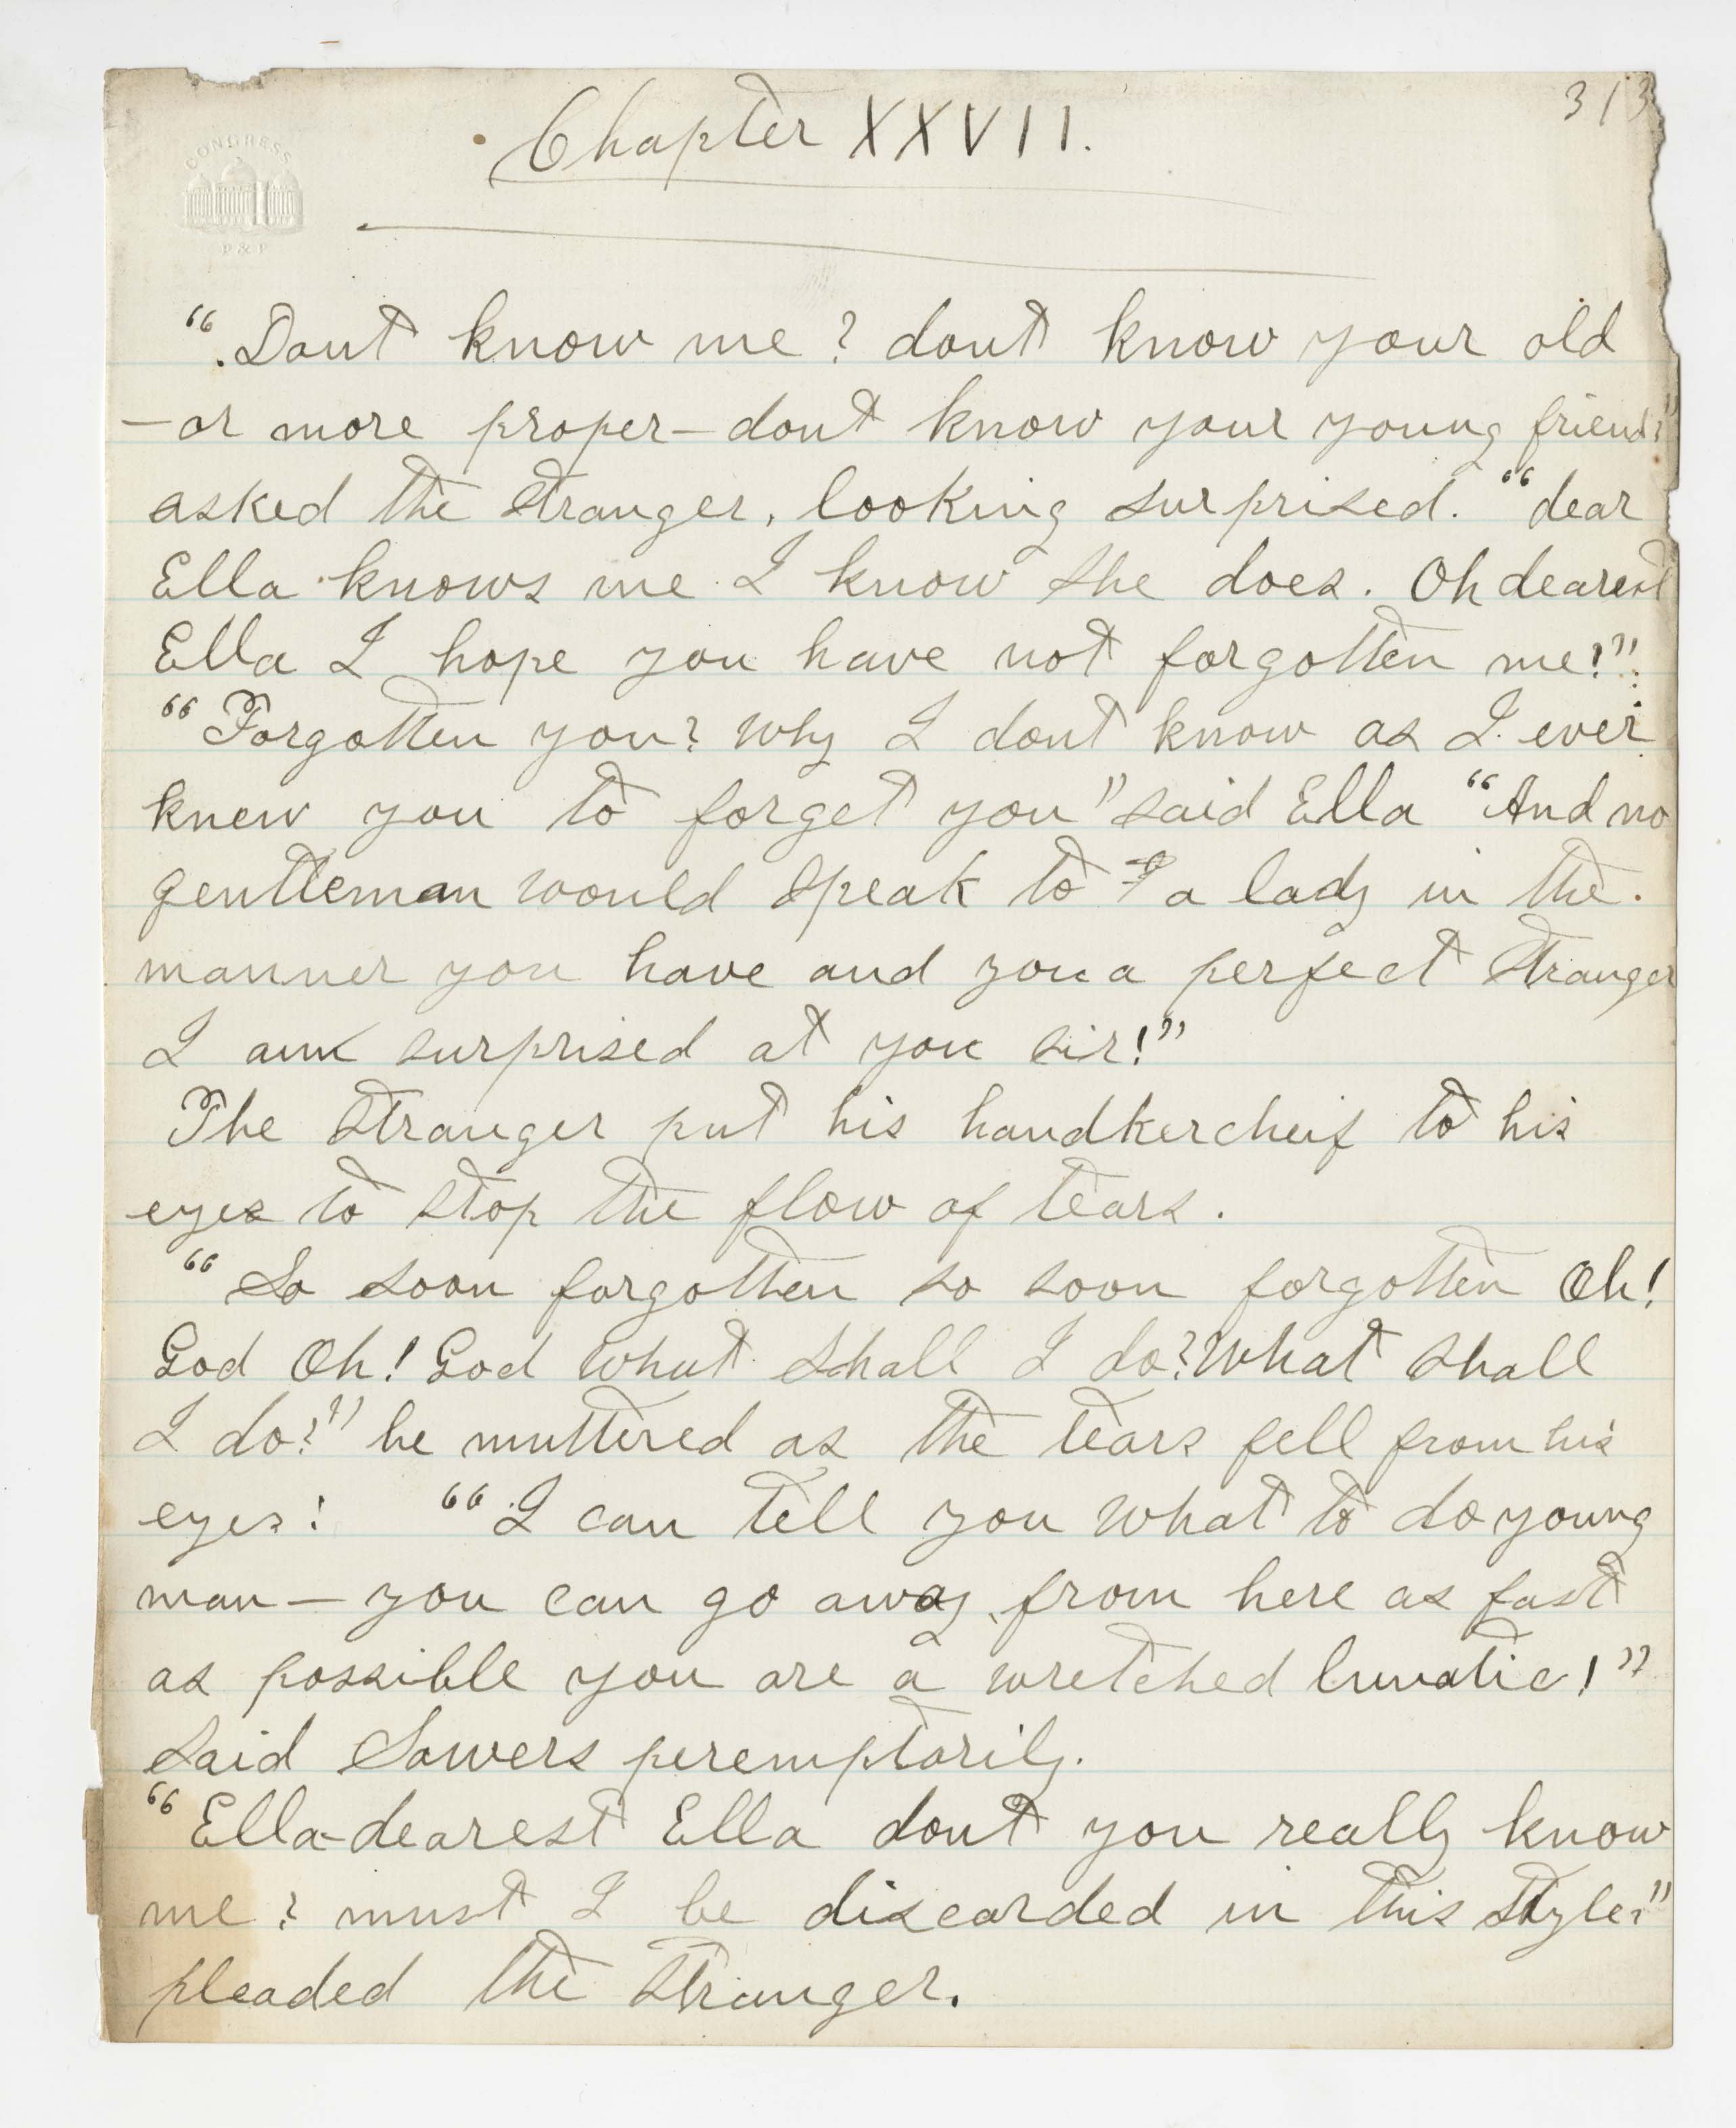 313
Chapter XXVII.
CONGRESS
P & P
"Dont know me? dont know your old
—or more proper—dont know your young friend?"
asked the stranger, looking surprised. "dear
Ella knows me I know she does. Oh dearest
Ella I hope you have not forgotten me?"
"Forgotten you? Why I dont know as I ever
knew you to forget you" said Ella "And no
gentleman would speak to a lady in the
manner you have and you a perfect stranger
I am surprised at you sir!"
The stranger put his handkercheif to his
eyes to stop the flow of tears.
"So soon forgotten so soon forgotten Oh!
God Oh! God what shall I do? What shall
I do?" he muttered as the tears fell from his
eyes! "I can tell you what to do young
man — you can go away from here as fast
as possible you are a wretched lunatic!"
said Sowers peremptorily.
"Ella-dearest Ella dont you really know
me? must I be discarded in this style?"
pleaded the stranger.